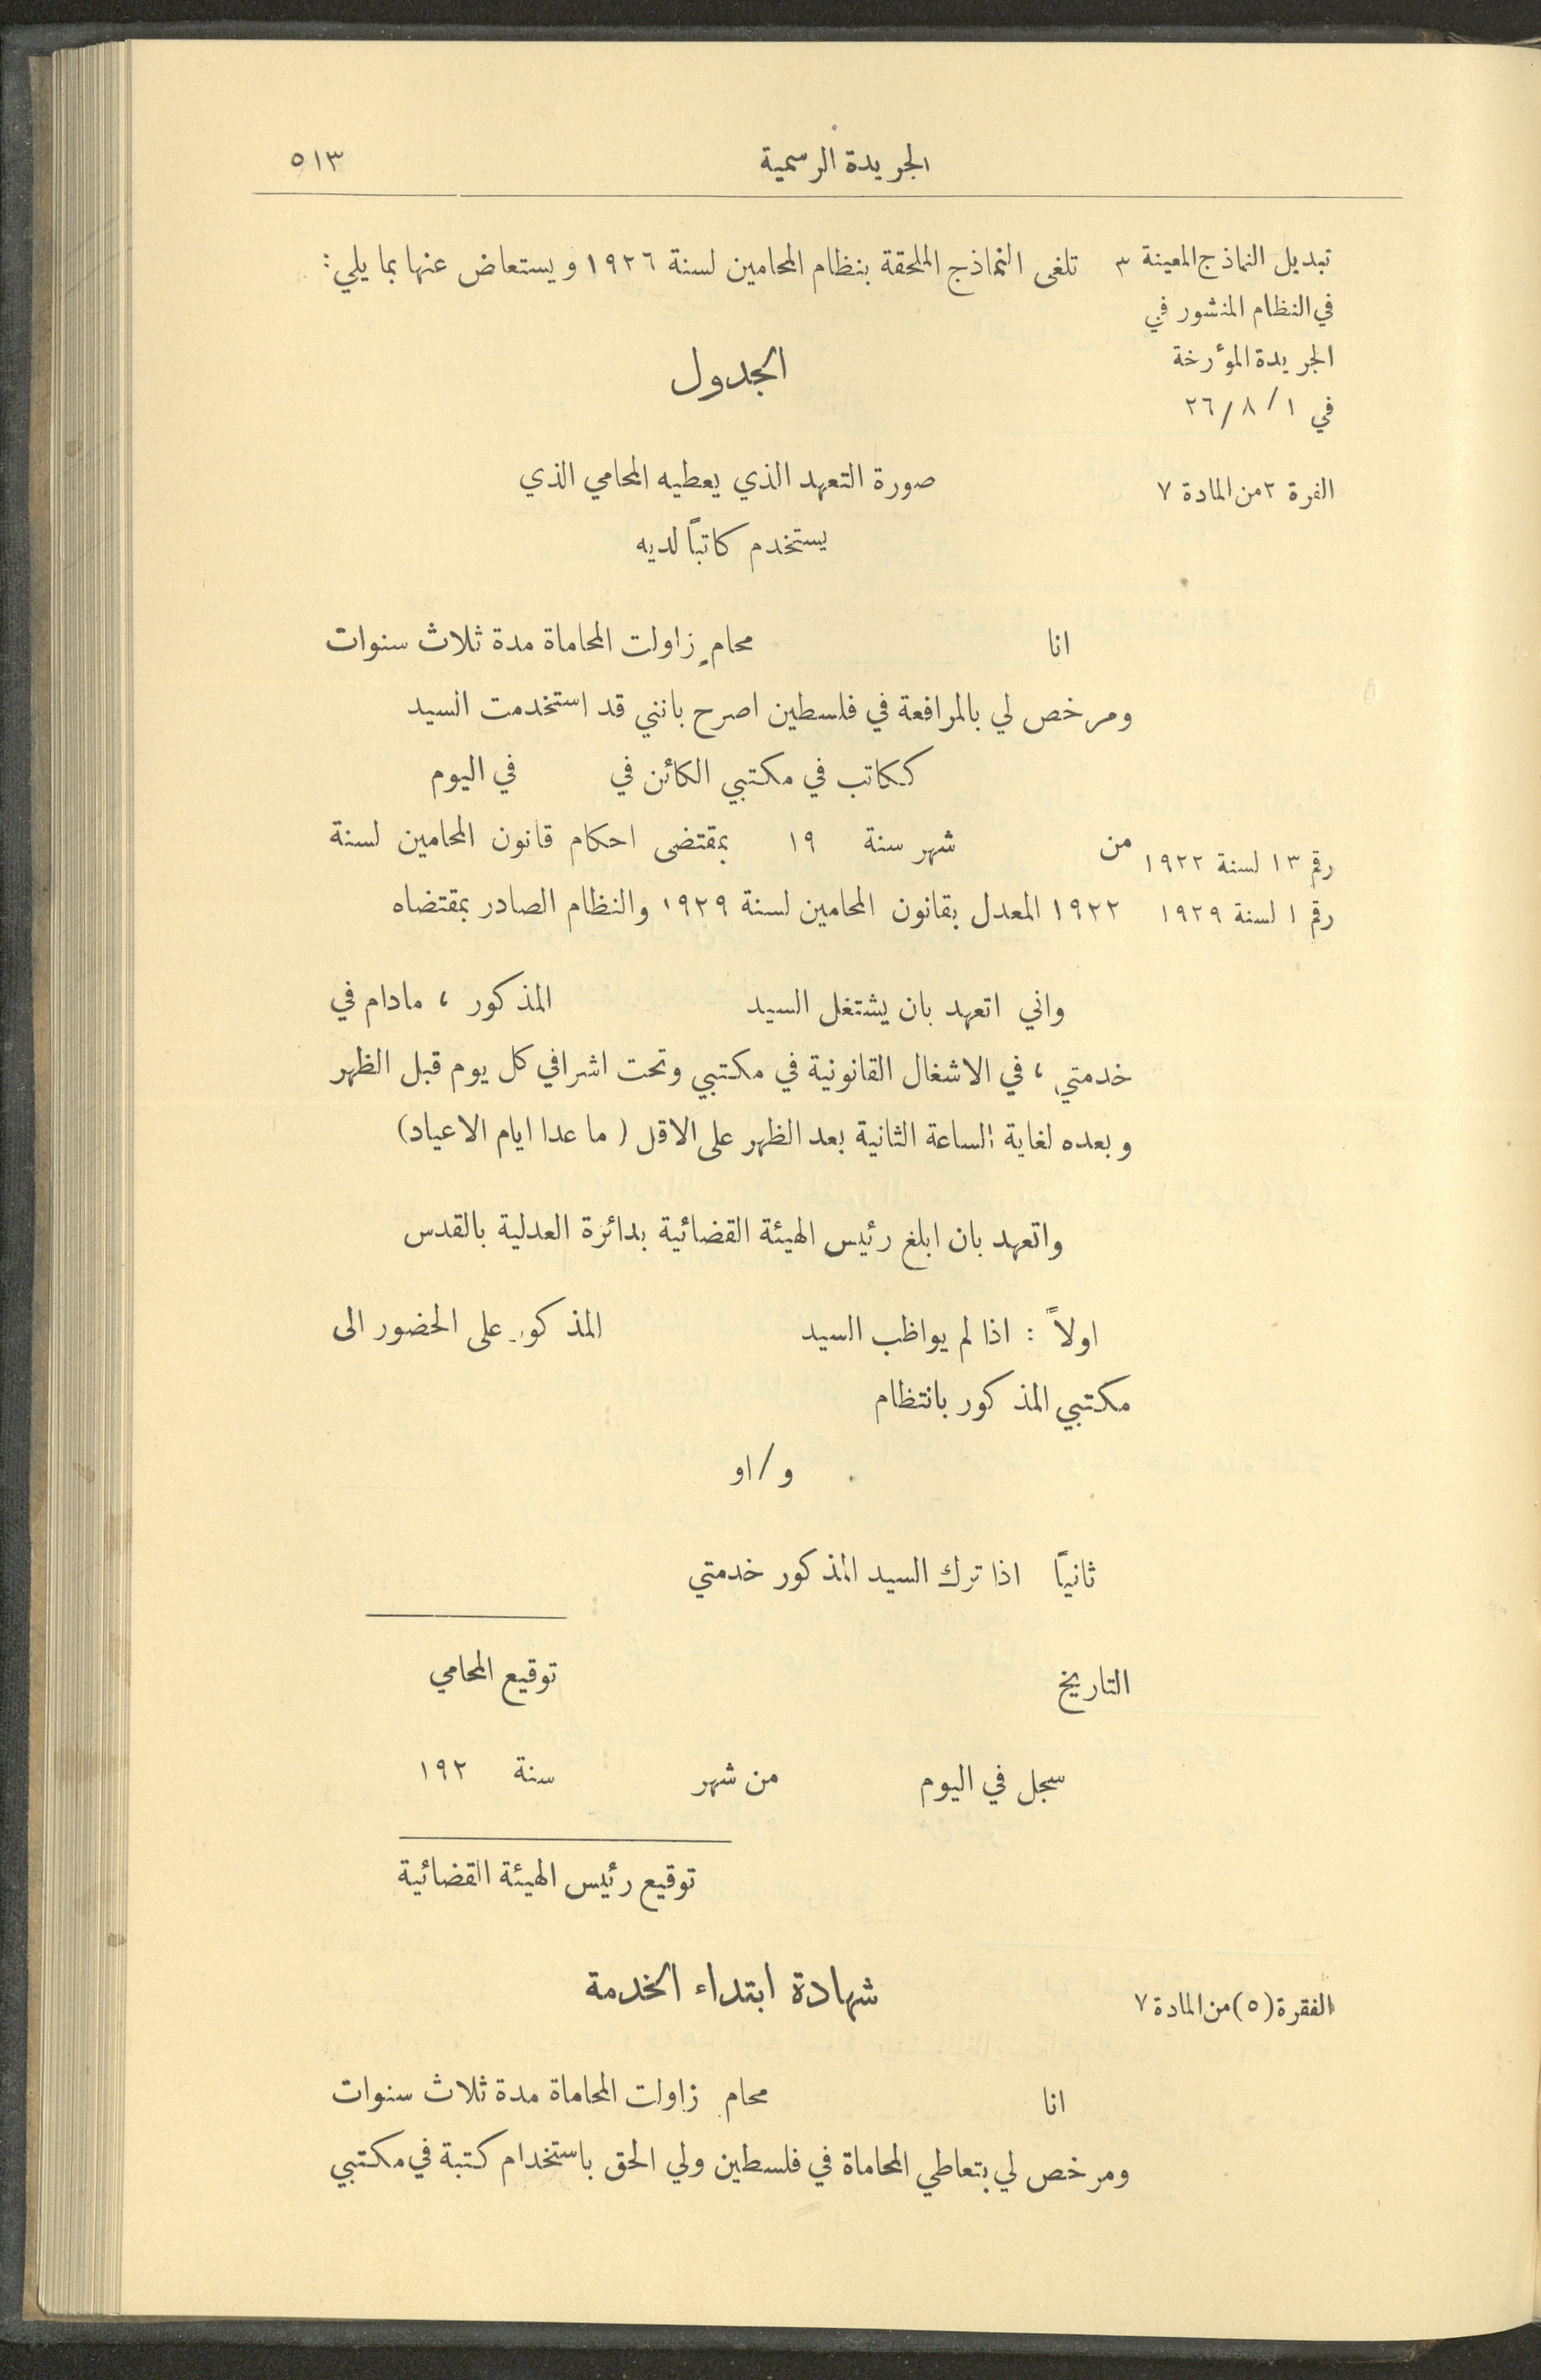 الجريدة الرسمية
٥١٣
تبديل النماذج المعينة
في النظام المنشور في
الجريدة المؤرخة
في ١ / ٨ / ٢٦
٣ تلغى النماذج الملحقة بنظام المحامين لسنة ١٩٢٦ ويستعاض عنها بما يلي :
الجدول
الفرة ٢ من المادة ٧
صورة التعهد الذي يعطيه المحامي الذي
يستخدم كاتباً لديه
انا محامٍ زاولت المحاماة مدة ثلاث سنوات
ومرخص لي بالمرافعة في فلسطين اصرح بانني قد استخدمت السيد
ككاتب في مكتبي الكائن في في اليوم
من شهر سنة ١٩ بمقتضى احكام قانون المحامين لسنة
رقم ١٣ لسنة ١٩٢٢
رقم ١ لسنة ١٩٢٩
١٩٢٢ المعدل بقانون المحامين لسنة ١٩٢٩ والنظام الصادر بمقتضاه
واني اتعهد بان يشتغل السيد المذكور ، مادام في
خدمتي ، في الاشغال القانونية في مكتبي وتحت اشرافي كل يوم قبل الظهر
وبعده لغاية الساعة الثانية بعد الظهر على الاقل ( ما عدا ايام الاعياد )
واتعهد بان ابلغ رئيس الهيئة القضائية بدائرة العدلية بالقدس
اولاً : اذا لم يواظب السيد المذكور على الحضور الى
مكتبي المذكور بانتظام
و / او
ثانياً اذا ترك السيد المذكور خدمتي
التاريخ توقيع المحامي
سجل في اليوم من شهر سنة ١٩٢
توقيع رئيس الهيئة القضائية
الفقرة (٥) من المادة ٧
شهادة ابتداء الخدمة
انا محام زاولت المحاماة مدة ثلاث سنوات
ومرخص لي بتعاطي المحاماة في فلسطين ولي الحق باستخدام كتبة في مكتبي